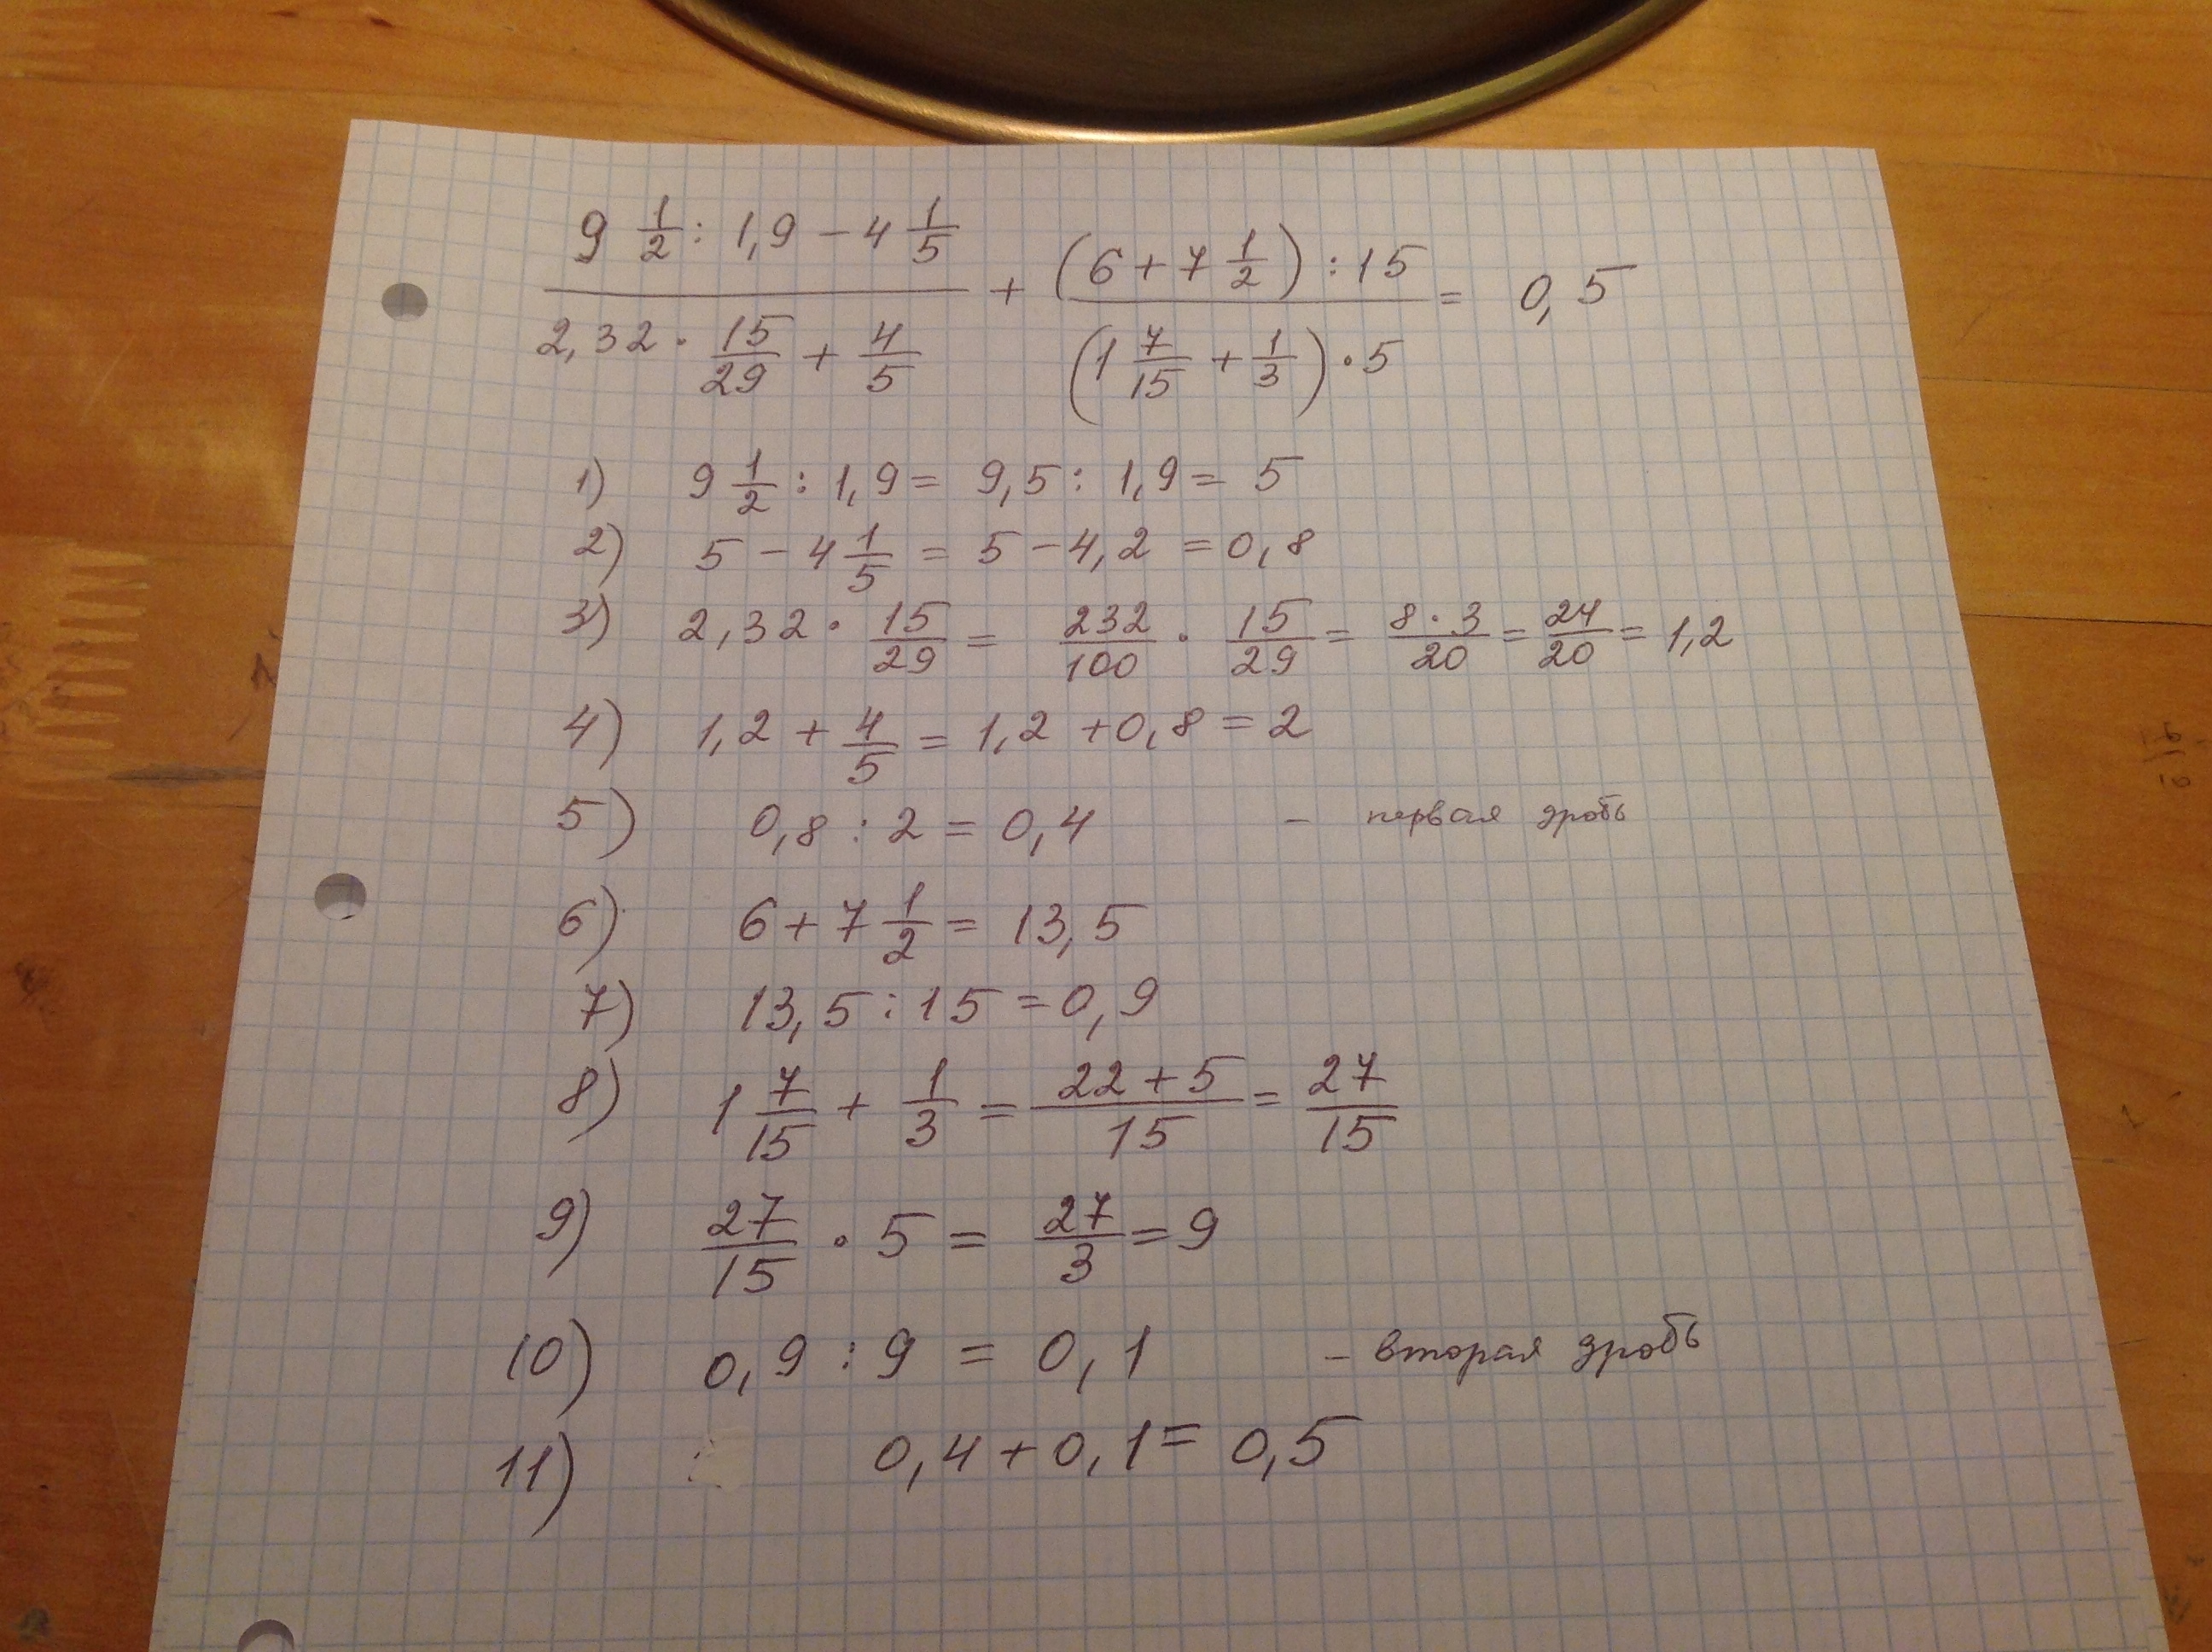 (9 1/2 : 1,9 - 4 1/5) / (2,32 · 15/29 + 4/5) + ((6 + 7 1/2) : 15) / ((1 7/15 + 1/3) · 5) = 0,5
1) 9 1/2 : 1,9 = 9,5 : 1,9 = 5
2) 5 - 4 1/5 = 5 - 4,2 = 0,8
3) 2,32 · 15/29 = 232/100 · 15/29 = 8·3/20 = 24/20 = 1,2
4) 1,2 + 4/5 = 1,2 + 0,8 = 2
5) 0,8 : 2 = 0,4 - первая дробь
6) 6 + 7 1/2 = 13,5
7) 13,5 : 15 = 0,9
8) 1 7/15 + 1/3 = 22+5/15 = 27/15
9) 27/15 · 5 = 27/3 = 9
10) 0,9 : 9 = 0,1 - вторая дробь
11) 0,4 + 0,1 = 0,5